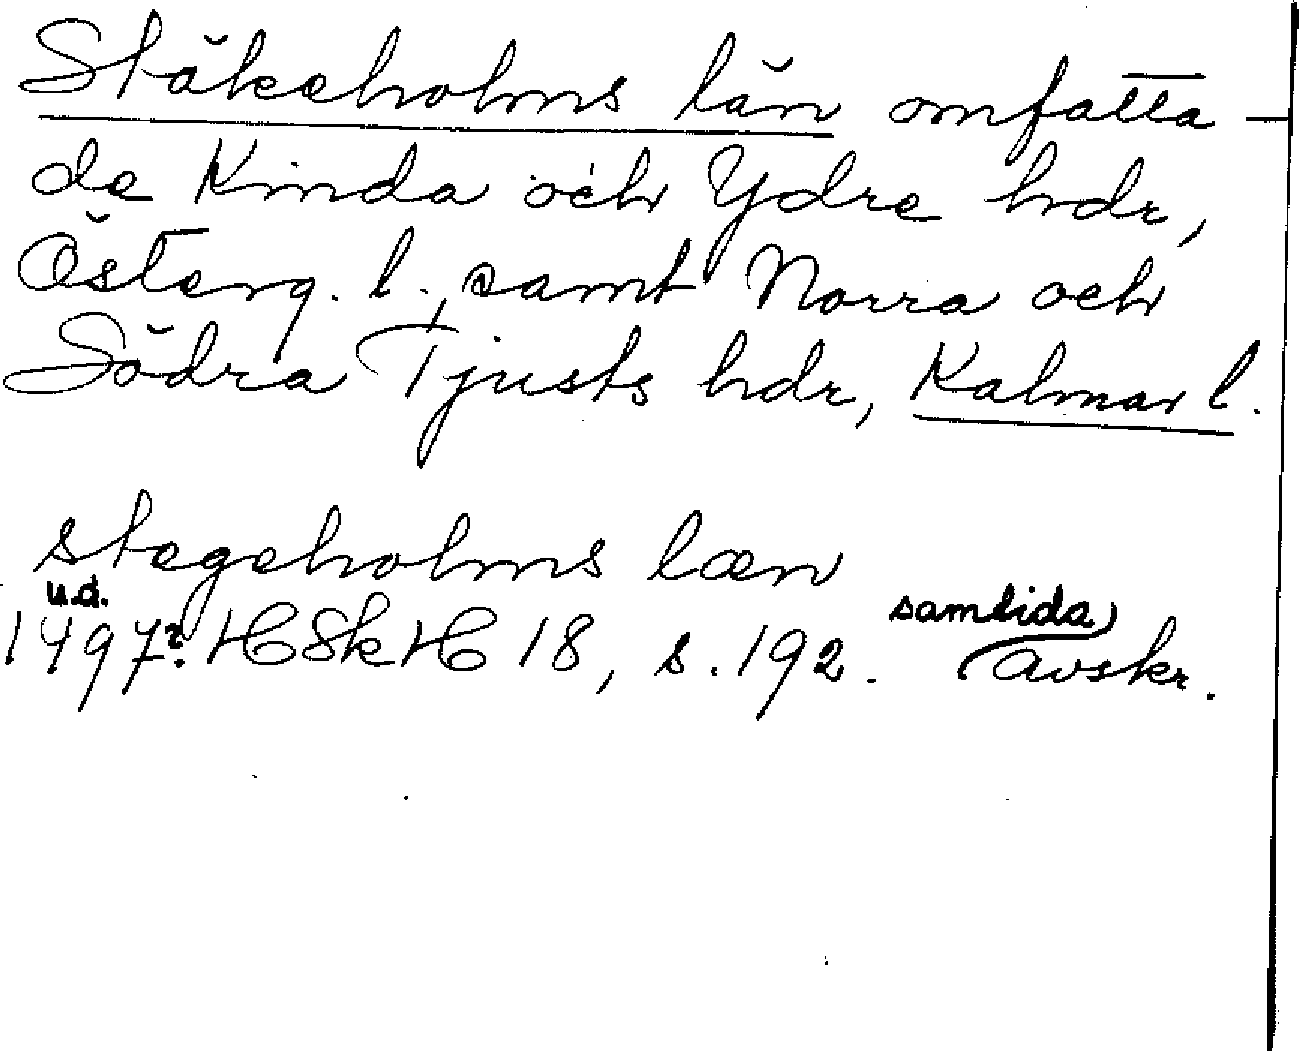 Stäkeholms län omfatta-
de Kinda och Ydre hdr,
Österg. l., samt Norra och
Södra Tjusts hdr, Kalmar l.
stegeholms læn
u.d. samtida
1497? HSkH 18, s. 192. avskr.